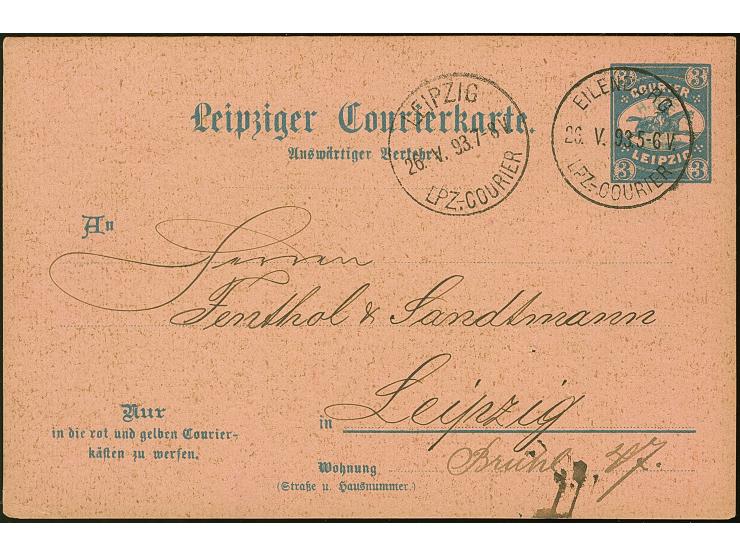 3 3
COURIER
LEIPZIG
3 3
EILENBURG
26. V. 93.5-6 V.
LPZ.-COURIER
LEIPZIG
26. V. 93.7-8 V.
LPZ.-COURIER
Leipziger Courierkarte.
Auswärtiger Verkehr.
An
Herren
Fenthol & Sandtmann
in Leipzig
Nur
in die rot und gelben Courier-
käſten zu werfen.
Wohnung Brühl 47.
(Straße u. Hausnummer.)